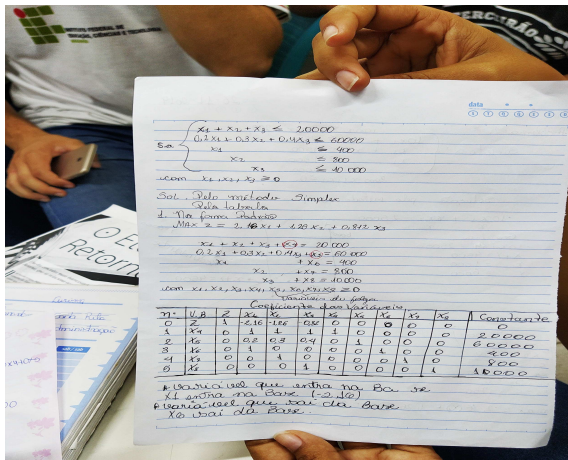 INSTITUTO FEDERAL DE
EDUCAÇÃO, CIÊNCIA E TECNOLOGIA
data
x1 + x2 + x3 ≤ 20000
0,2x1 + 0,3x2 + 0,4x3 ≤ 60000
S.a
x1 ≤ 400
x2 ≤ 800
x3 ≤ 10 000
com x1, x2, x3 ≥ 0
Sol. Pelo método Simplex
Pela tabela
1. Na forma Padrão
MAX Z = 2,16 x1 + 1,26 x2 + 0,812 x3
x1 + x2 + x3 + x4 = 20 000
0,2x1 + 0,3x2 + 0,4x3 + x5 = 60 000
x1 + x6 = 400
x2 + x7 = 800
x3 + x8 = 10.000
com x1, x2, x3, x4, x5, x6, x7, x8 ≥ 0
Variáveis de folga
Coeficiente das Variáveis
nº V.B Z x1 x2 x3 x4 x5 x6 x7 x8 Constante
0 Z 1 -2,16 -1,26 0 0 0 0 0 0
1 x4 0 1 1 1 1 0 0 0 0 20000
2 x5 0 0,2 0,3 0,4 0 1 0 0 0 60000
3 x6 0 1 0 0 0 0 1 0 0 400
4 0 0 1 0 0 0 0 1 0 800
5 x8 0 0 0 1 0 0 0 0 10000
A variável que entra na Base
X1 entra na Base (-2,16)
A variável que sai da Base
X6 sai da Base
O
Retorn